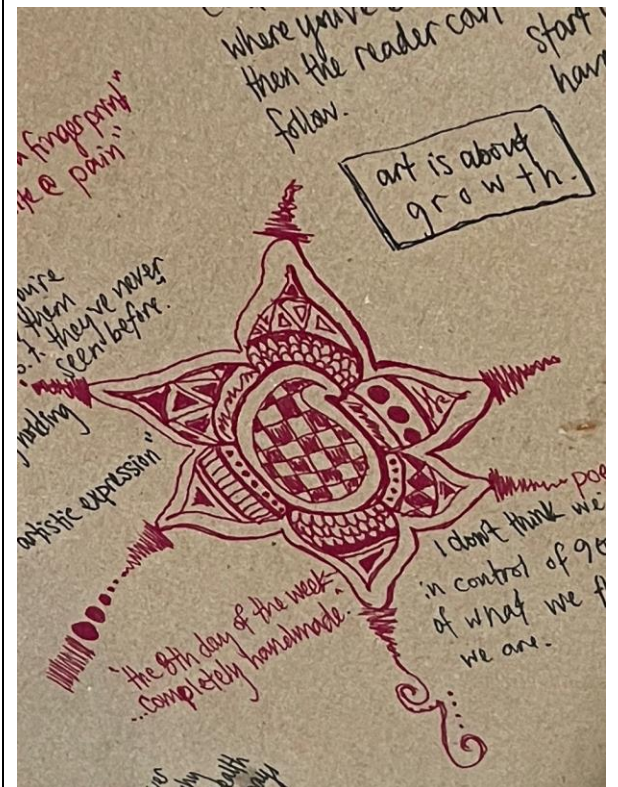 where you've
then the reader can
follow.
start
hav
art is about
growth.
fingerprint"
pain"
you're
them
they've never
seen before.
holding
artistic expression"
poe
I don't think we
in control of
of what we
we are.
"the 8th day of the week
...completely handmade.